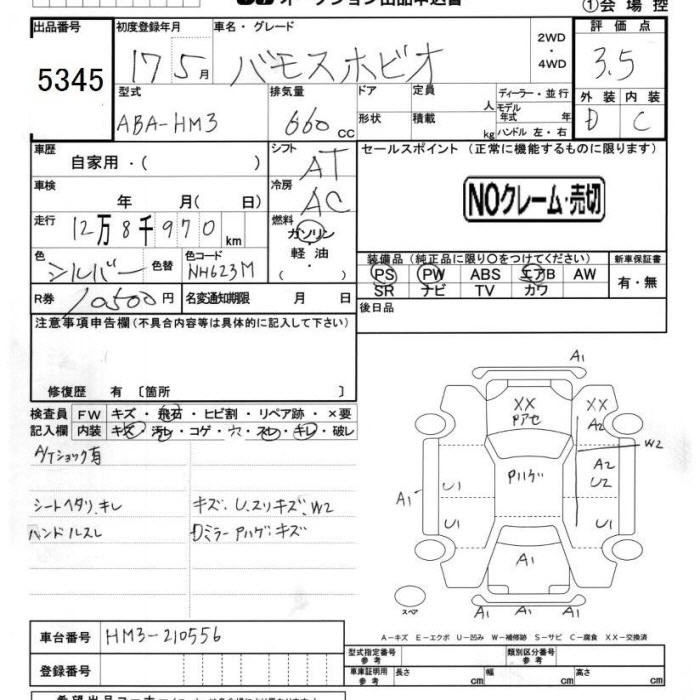 オークション出品申込書
①会場控
出品番号
5345
初度登録年月
17 5月
車名・グレード
バモスホビオ
2WD
・
4WD
評価点
3.5
外装 内装
D C
型式
ABA-HM3
排気量
660 cc
ドア
定員
人
形状
積載
kg
ディーラー・並行
モデル年式 年
ハンドル 左・右
車歴
自家用・( )
シフト
AT
冷房
AC
車検
年 月( 日)
走行
12万8千970 km
燃料
ガソリン
・
軽油
・( )
色
シルバー
色替
色コード
NH623M
R券 10500円
名変通知期限 月 日
セールスポイント(正常に機能するものに限ります)
NOクレーム・売切
装備品(純正品に限り○をつけてください)
PS PW ABS エアB AW
SR ナビ TV カワ
新車保証書
有・無
後日品
注意事項申告欄(不具合内容等は具体的に記入して下さい)
修復歴 有〔箇所 〕
検査員 FW キズ・飛石・ヒビ割・リペア跡・×要
記入欄 内装 キズ・汚レ・コゲ・穴・スレ・キレ・破レ
A/Tショック有
シートヘタリ、キレ
ハンドルスレ
キズ、U、スリキズ、W2
Dミラー Pハゲ、キズ
A1
XX
Pアセ
XX
A2
W2
Pハゲ
A2
U2
U1
A1
U1
A1
スペア
A1 A1 A1
A-キズ E-エクボ U-凹み W-補修跡 S-サビ C-腐食 XX-交換済
車台番号 HM3-210556
登録番号
型式指定番号
参考
類別区分番号
参考
車庫証明用
参考
長さ cm 幅 cm 高さ cm